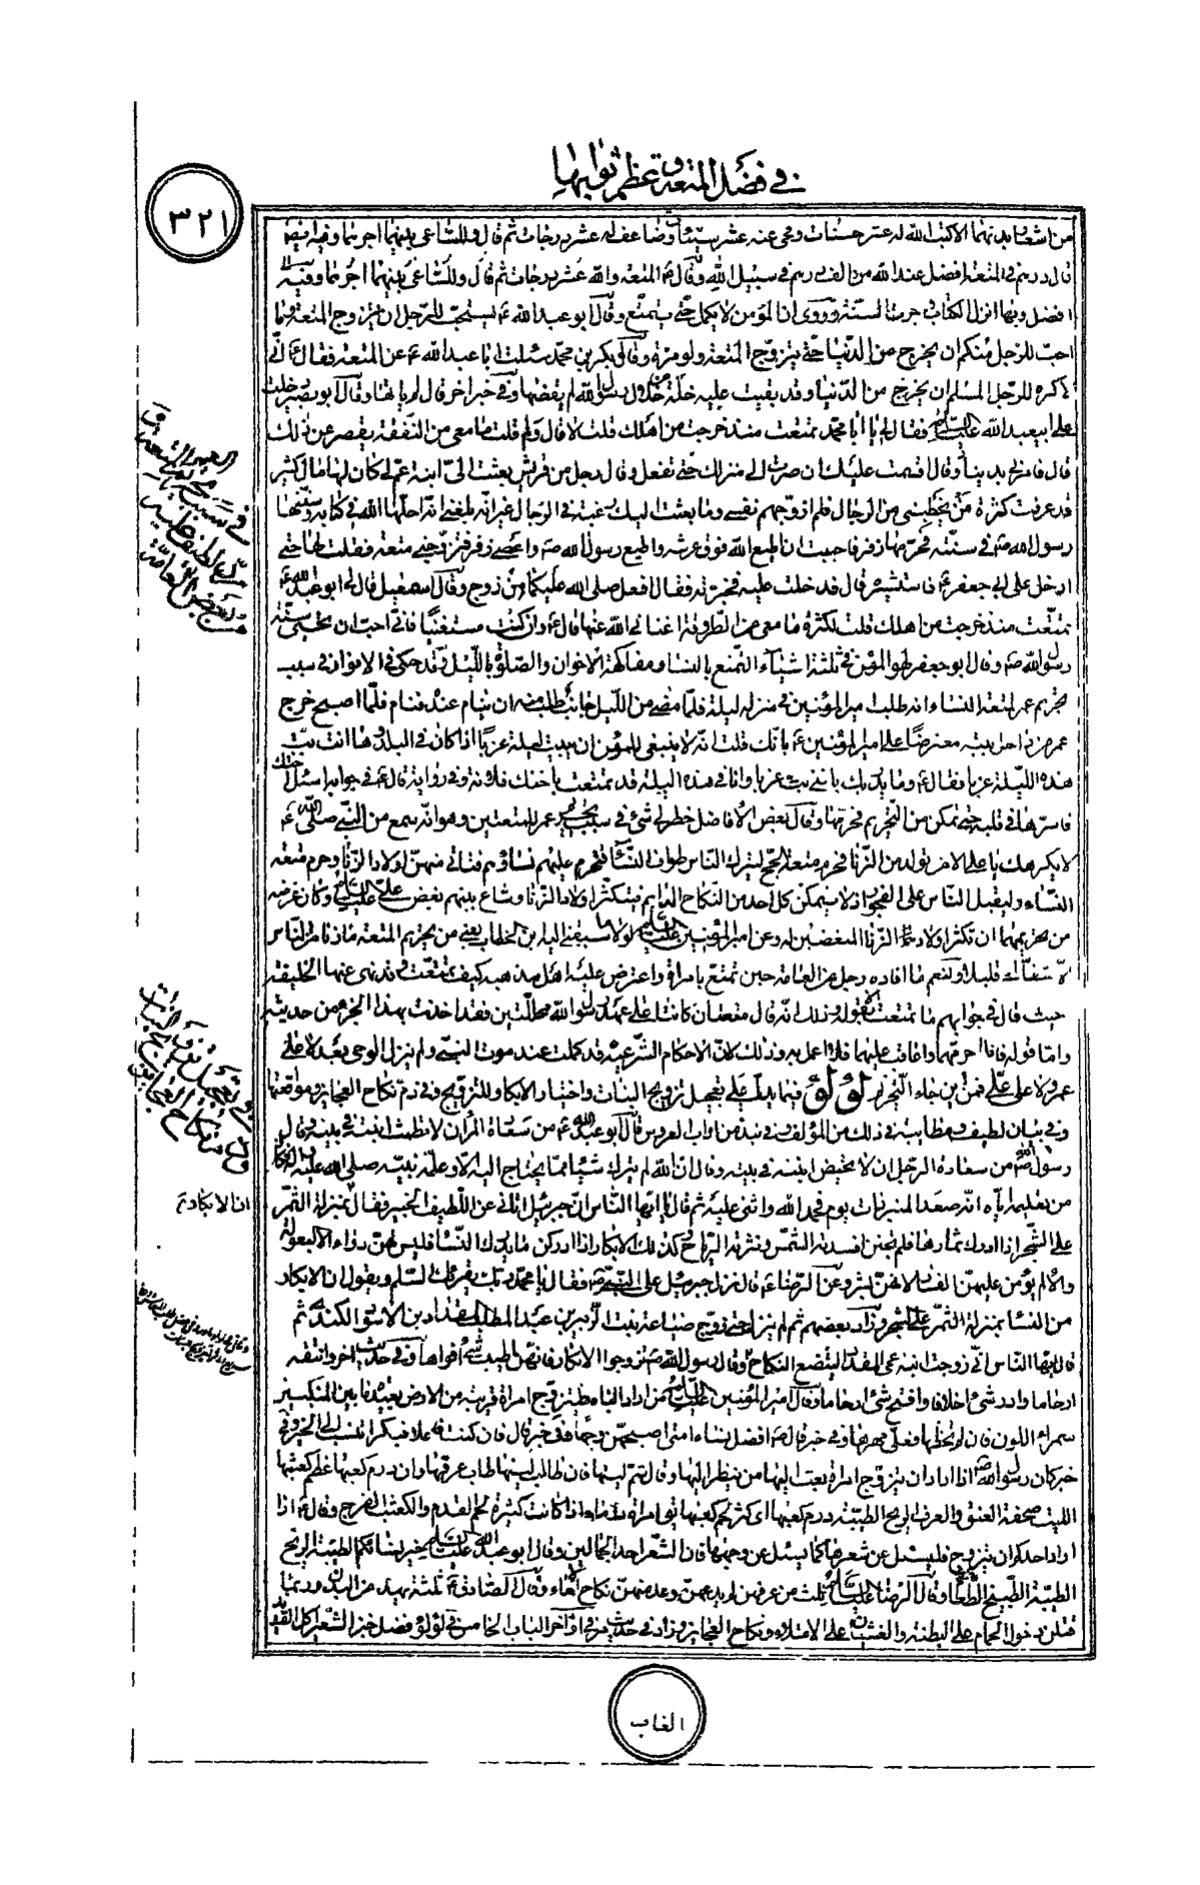 في فضل المتعة وعظم ثوابها
٣٢١
قال درهم في المتعة افضل عند الله من الف درهم في سبيل الله وقال
افضل وبها انزل الكتاب وجرت السنة وروى ان المؤمن لا يكمل حتى يتمتع وقال ابو عبد الله ع يستحب للرجل ان يتزوج المتعة وما
احب للرجل منكم ان يخرج من الدنيا حتى يتزوج المتعة ولو مرة وقال بكر بن محمد سئلت ابا عبد الله ع عن المتعة فقال ع انى
اكره للرجل المسلم ان يخرج من الدنيا وقد بقيت عليه خلة من خلال رسول الله لم يقضها وفي خبر اخر قال لم ياتها وقال ابو بصير دخلت
على ابيعبد الله عليه السلام فقال لي يا ابا محمد تمتعت منذ خرجت من اهلك قلت لا قال ولم قلت ما معي من النفقة يقصر عن ذلك
قال فامر لي بدينار وقال اقسمت عليك ان صرت الى منزلك حتى تفعل وقال رجل من قريش بعثت الى ابنة عم لي كان لها مال كثير
قد عرفت كثرة من يخطبني من الرجال فلم ازوجهم نفسي وما بعثت اليك رغبة في الرجال غير انه بلغني انه احلها الله في كتابه وسنها
رسول الله ص في سنته فحرمها زفر فاحببت ان اطيع الله فوق عرشه واطيع رسول الله ص واعصى زفر فتزوجني متعة فقلت لها حتى
ادخل على ابي جعفر ع فاستشيره قال فدخلت عليه فخبرته فقال افعل صلى الله عليكما من زوج وقال اسمعيل قال لي ابو عبد الله ع
تمتعت منذ خرجت من اهلك قلت لكثرة ما معي من الطروقة اغناني الله عنها قال ع وان كنت مستغنيا فاني احب ان تحيى سنة
رسول الله ص وقال ابو جعفر لهو المؤمن في ثلثة اشياء التمتع بالنساء ومفاكهة الاخوان والصلوة بالليل وقد حكى في الانوار في سبب
تحريم عمر لمتعة النساء انه طلب امير المؤمنين في منزله ليلة فلما مضى من الليل جانب طلب منه ان ينام عنده فنام فلما اصبح خرج
عمر من داخل بيته معترضا على امير المؤمنين ع بانك قلت انه لا ينبغي للمؤمن ان يبيت ليلة عزبا اذا كان في البلد وها انت بت
هذه الليلة عزبا فقال ع وما يدريك باننى بت عزبا وانا في هذه الليلة قد تمتعت باختك فلانة وفي رواية قال ع في جوابه اسئل اختك
فاسرها في قلبه حتى تمكن من التحريم فحرمها وقال بعض الافاضل خطر لي شئ في سبب تحريم عمر للمتعتين وهو انه سمع من النبي صلى الله ع
لا يكرهك يا علي الا من تولد من الزنا فحرم متعة الحج ليترك الناس طواف النساء فتحرم عليهم نساؤهم فتاتي منهن اولاد الزنا وحرم متعة
النساء وليقبل الناس على الفجور اذ لا يتمكن كل احد من النكاح الدايم فيتكثر اولاد الزنا وشاع بينهم بغض علي عليه السلام وكان غرضه
من تحريمهما ان تكثر اولاد الزنا المبغضين له وعن امير المؤمنين عليه السلام لولا ما سبقني اليه ابن الخطاب يعني من تحريم المتعة ما زنا من الناس
الا شقا اي قليلا ولنعم ما افاده رجل من العامة حين تمتع بامراة واعترض عليه اهل مذهبه كيف تمتعت وقد نهى عنها الخليفة
حيث قال في جوابهم ما تمتعت الا بقوله وذلك انه قال متعتان كانتا على عهد رسول الله محللتين فقد اخذت بهذا الجزء من حديثه
واما قوله فانا احرمهما واعاقب عليهما فلا اعمل به وذلك لان الاحكام الشرعية قد كملت عند موت النبي ولم ينزل الوحي بعده لا على
عمر ولا على علي فمن اين جاء التحريم لؤلؤ فيما يدل على تعجيل تزويج البنات واختيار الابكار للتزويج وفي ذم نكاح العجايز ومواقعتها
وفي بيان لطيف ومطايبة في ذلك من المؤلف في نبذ من اداب العروس قال ابو عبد الله ع من سعادة المرء ان لا تطمث ابنته في بيته وقال
رسول الله ص من سعادة الرجل ان لا تحيض ابنته في بيته وقال ان الله لم يترك شيئا مما يحتاج اليه الا وعلمه نبيه صلى الله عليه واله فكان
من تعليمه اياه انه صعد المنبر ذات يوم فحمد الله واثنى عليه ثم قال يا ايها الناس ان جبرئيل اتاني عن اللطيف الخبير فقال ان الابكار بمنزلة الثمر
على الشجر اذا ادرك ثمارها فلم تجتن افسدته الشمس ونثرته الرياح كذلك الابكار اذا ادركن ما يدرك النساء فليس لهن دواء الا البعولة
والا لم يؤمن عليهن الفساد لانهن بشر وعن الرضا ع قال نزل جبرئيل على النبي ص فقال يا محمد ربك يقرئك السلام ويقول ان الابكار
من النساء بمنزلة الثمر على الشجر وزاد بعضهم ثم لم ينزل حتى زوج ضباعة بنت الزبير بن عبد المطلب المقداد بن الاسود الكندي ثم
قال ايها الناس انى زوجت ابنة عمي المقداد ليتضع النكاح وقال رسول الله ص تزوجوا الابكار فانهن اطيب شئ افواها وفي حديث اخر وانشفه
ارحاما وادر شئ اخلافا وافتح شئ ارحاما وقال امير المؤمنين عليه السلام من اراد الباه فليتزوج امراة قريبة من الارض بعيدة ما بين المنكبين
سمراء اللون فان لم يحظها فعلى مهرها وفي خبر قال ص افضل نساء امتي اصبحهن وجها
خبر كان رسول الله ص اذا اراد ان يتزوج امراة بعث اليها من ينظر اليها وقال شم ليتها فان طاب ليتها طاب عرفها وان درم كعبها عظم كعثبها
الليت صفحة العنق والعرف الريح الطيبة ودرم كعبها اي كثر لحم كعبها يق امراة درماء اذا كانت كثيرة لحم القدم والكعثب الفرج وقال ع اذا
اراد احدكم ان يتزوج فليسئل عن شعرها كما يسئل عن وجهها فان الشعر احد الجمالين وقال ابو عبد الله عليه السلام خير نسائكم الطيبة الريح
الطيبة الطبيخ الطعام وقال الرضا عليه السلام ثلث من عرفهن لم يدعهن وعد منهن نكاح الاماء وقال الصادق ع ثلثة يهدمن البدن وربما
قتلن دخول الحمام على البطنة والغشيان على الامتلاء ونكاح العجايز وزاد في حديث مر في اواخر الباب الخامس في لؤلؤ فضل خبز الشعير اكل القديد
الغاب